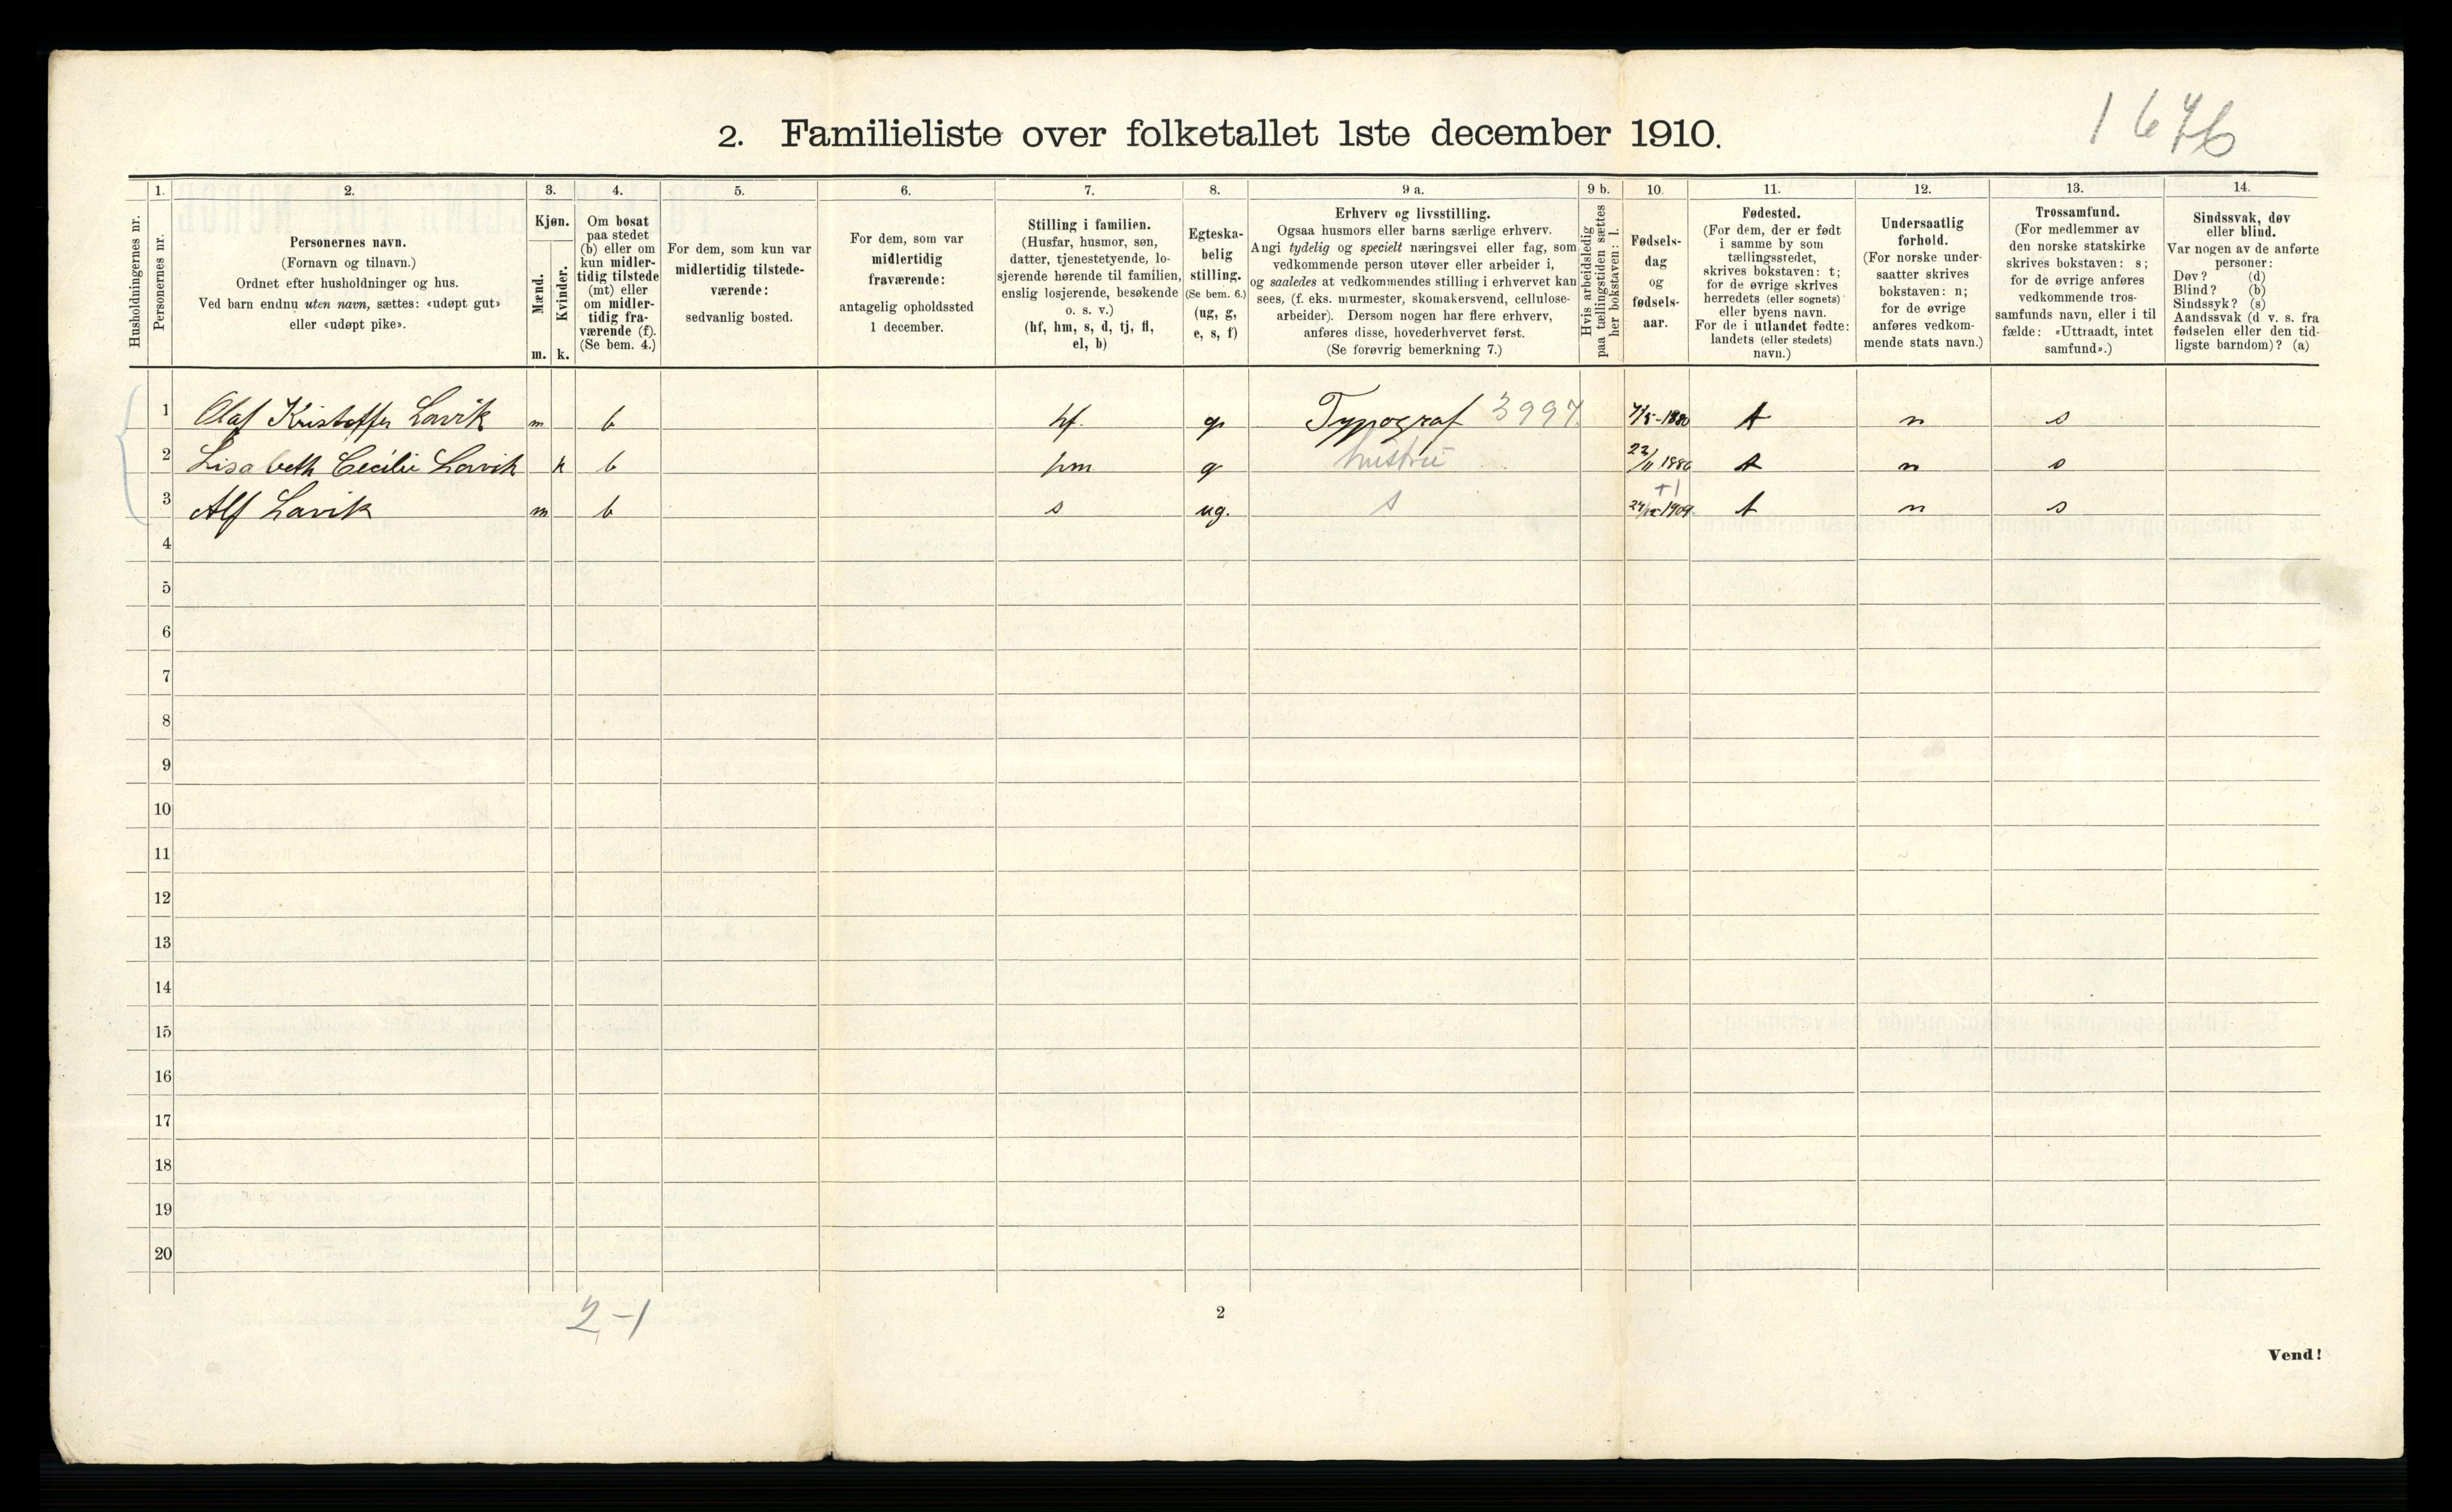 1676
2. Familieliste over folketallet 1ste december 1910.
1. 2. 3. 4. 5. 6. 7. 8. 9 a. 9 b. 10. 11. 12. 13. 14.
Husholdningernes nr.
Personernes nr.
Personernes navn.
(Fornavn og tilnavn.)
Ordnet efter husholdninger og hus.
Ved barn endnu uten navn, sættes: «udøpt gut»
eller «udøpt pike».
Kjøn.
Mænd.
Kvinder.
m. k.
Om bosat
paa stedet
(b) eller om
kun midler-
tidig tilstede
(mt) eller
om midler-
tidig fra-
værende (f).
(Se bem. 4.)
For dem, som kun var
midlertidig tilstede-
værende:
sedvanlig bosted.
For dem, som var
midlertidig
fraværende:
antagelig opholdssted
1 december.
Stilling i familien.
(Husfar, husmor, søn,
datter, tjenestetyende, lo-
sjerende hørende til familien,
enslig losjerende, besøkende
o. s. v.)
(hf, hm, s, d, tj, fl,
el, b)
Egteska-
belig
stilling.
(Se bem. 6.)
(ug, g,
e, s, f)
Erhverv og livsstilling.
Ogsaa husmors eller barns særlige erhverv.
Angi tydelig og specielt næringsvei eller fag, som
vedkommende person utøver eller arbeider i,
og saaledes at vedkommendes stilling i erhvervet kan
sees, (f. eks. murmester, skomakersvend, cellulose-
arbeider). Dersom nogen har flere erhverv,
anføres disse, hovederhvervet først.
(Se forøvrig bemerkning 7.)
Hvis arbeidsledig
paa tællingstiden sættes
her bokstaven: l.
Fødsels-
dag
og
fødsels-
aar.
Fødested.
(For dem, der er født
i samme by som
tællingsstedet,
skrives bokstaven: t;
for de øvrige skrives
herredets (eller sognets)
eller byens navn.
For de i utlandet fødte:
landets (eller stedets)
navn.)
Undersaatlig
forhold.
(For norske under-
saatter skrives
bokstaven: n;
for de øvrige
anføres vedkom-
mende stats navn.)
Trossamfund.
(For medlemmer av
den norske statskirke
skrives bokstaven: s;
for de øvrige anføres
vedkommende tros-
samfunds navn, eller i til
fælde: «Uttraadt, intet
samfund».)
Sindssvak, døv
eller blind.
Var nogen av de anførte
personer:
Døv? (d)
Blind? (b)
Sindssyk? (s)
Aandssvak (d v. s. fra
fødselen eller den tid-
ligste barndom)? (a)
1 Olaf Kristoffer Lavik m b hf. g Typograf 3997 7/5-1880 t n s
2 Lisabeth Cecilie Lavik k b hm g hustru 22/11 1886 t n s
+1
3 Alf Lavik m b s ug. s 1909 t n s
4
5
6
7
8
9
10
11
12
13
14
15
16
17
18
19
20
2-1
2
Vend!